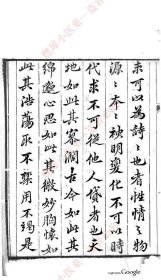 未可以為詩々也者性情之物
源々本々神明變化不可以時
代求不可從他人貸者也天
地如此其寥闊古今如此其
綿邈心思如此其微妙胸懷如
此其浩蕩取不禁用不竭是